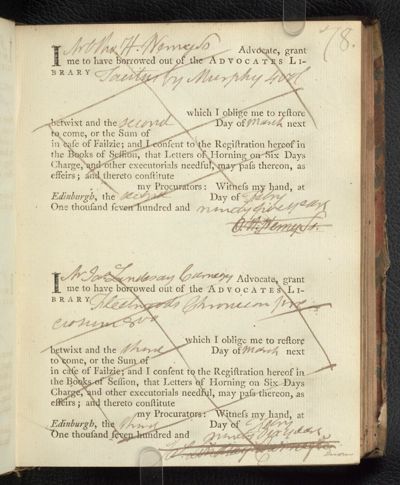 78.
I Mr Tho. W. Wemyss Advocate, grant
me to have borrowed out of the ADVOCATES LI-
BRARY Tacitus by Murphy 4 vol
which I oblige me to reſtore
betwixt and the second Day of March next
to come, or the Sum of
in caſe of Failzie; and I conſent to the Regiſtration hereof in
the Books of Seſſion, that Letters of Horning on Six Days
Charge, and other executorials needful, may paſs thereon, as
effeirs; and thereto conſtitute
my Procurators: Witneſs my hand, at
Edinburgh, the second Day of Febry
One thouſand ſeven hundred and ninety five years
Wemyss
I Mr Jas Lindesay Carnegy Advocate, grant
me to have borrowed out of the ADVOCATES LI-
BRARY Fleetwoods Chronicon
which I oblige me to reſtore
betwixt and the third Day of March next
to come, or the Sum of
in caſe of Failzie; and I conſent to the Regiſtration hereof in
the Books of Seſſion, that Letters of Horning on Six Days
Charge, and other executorials needful, may paſs thereon, as
effeirs; and thereto conſtitute
my Procurators: Witneſs my hand, at
Edinburgh, the third Day of Febry
One thouſand ſeven hundred and ninety five years